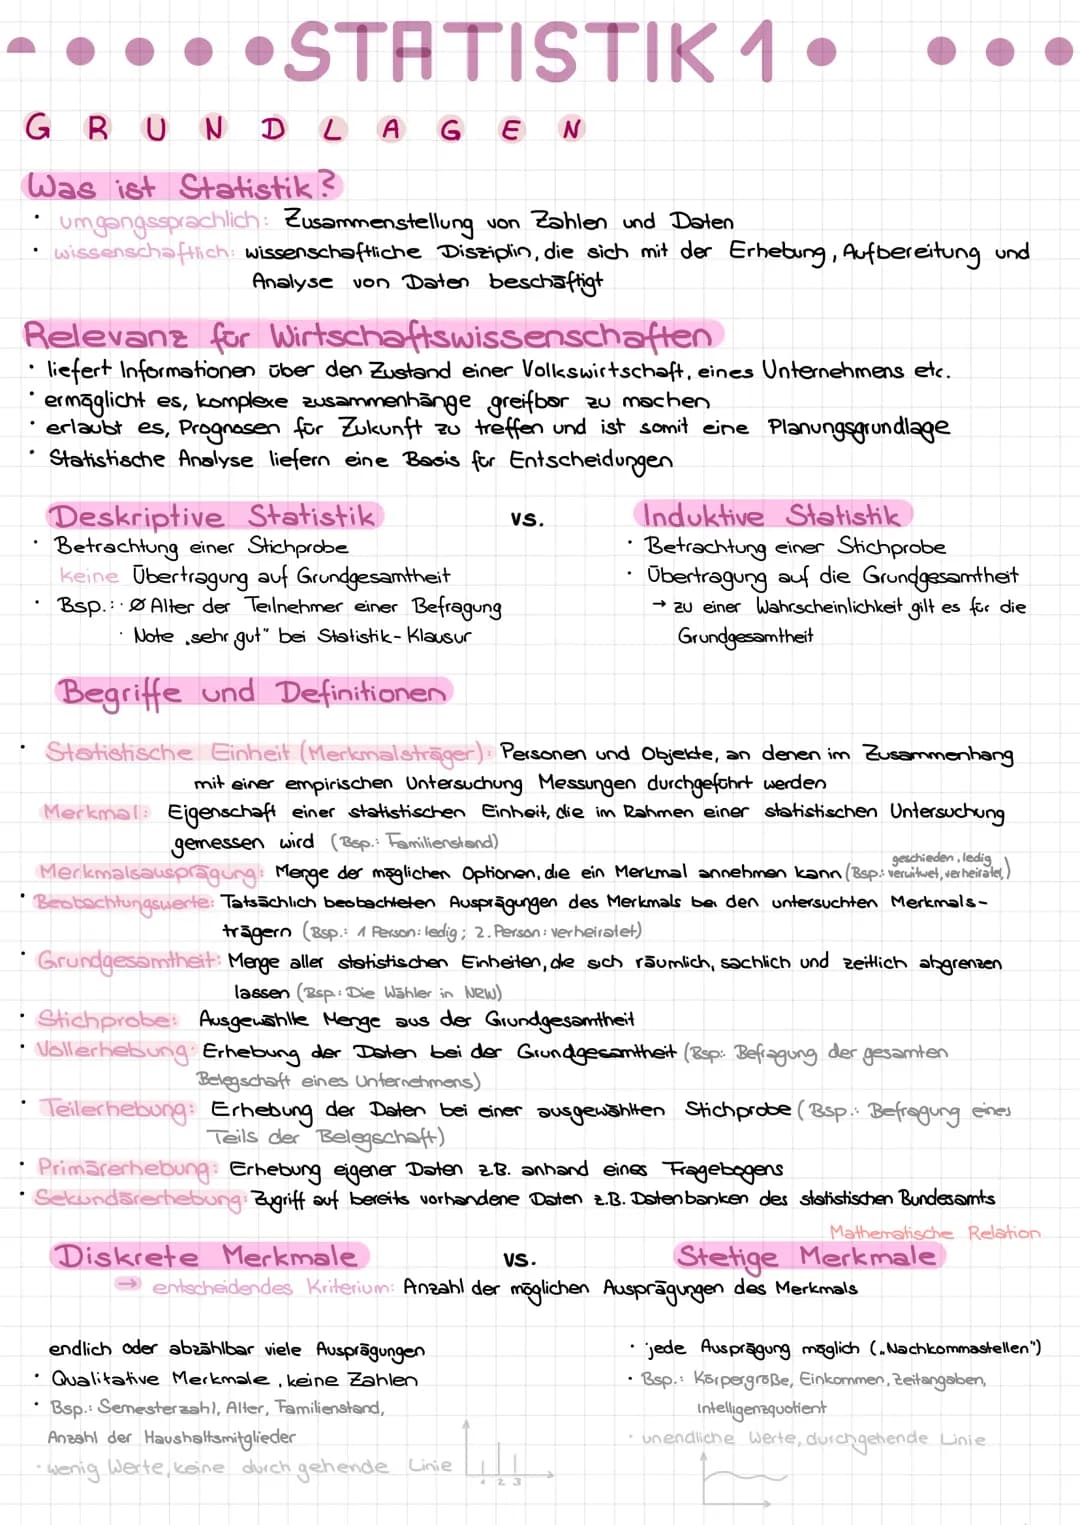 STATISTIK 1
GRUNDLAGEN
Was ist Statistik?
• umgangssprachlich: Zusammenstellung von Zahlen und Daten
• wissenschaftlich: wissenschaftliche Disziplin, die sich mit der Erhebung, Aufbereitung und
Analyse von Daten beschäftigt
Relevanz für Wirtschaftswissenschaften
• liefert Informationen über den Zustand einer Volkswirtschaft, eines Unternehmens etc.
• ermöglicht es, komplexe zusammenhänge greifbar zu machen
• erlaubt es, Prognosen für Zukunft zu treffen und ist somit eine Planungsgrundlage
• Statistische Analyse liefern eine Basis für Entscheidungen
Deskriptive Statistik vs. Induktive Statistik
• Betrachtung einer Stichprobe
keine Übertragung auf Grundgesamtheit
• Bsp.: · Ø Alter der Teilnehmer einer Befragung
· Note „sehr gut" bei Statistik-Klausur
• Betrachtung einer Stichprobe
• Übertragung auf die Grundgesamtheit
→ zu einer Wahrscheinlichkeit gilt es für die
Grundgesamtheit
Begriffe und Definitionen
• Statistische Einheit (Merkmalsträger): Personen und Objekte, an denen im Zusammenhang
mit einer empirischen Untersuchung Messungen durchgeführt werden
Merkmal: Eigenschaft einer statistischen Einheit, die im Rahmen einer statistischen Untersuchung
gemessen wird (Bsp.: Familienstand)
geschieden, ledig
Merkmalsausprägung: Menge der möglichen Optionen, die ein Merkmal annehmen kann (Bsp.: verwitwet, verheiratet,)
• Beobachtungswerte: Tatsächlich beobachteten Ausprägungen des Merkmals bei den untersuchten Merkmals-
trägern (Bsp.: 1 Person: ledig; 2. Person: verheiratet)
• Grundgesamtheit: Menge aller statistischen Einheiten, die sich räumlich, sachlich und zeitlich abgrenzen
lassen (Bsp.: Die Wähler in NRW)
• Stichprobe: Ausgewählte Menge aus der Grundgesamtheit
• Vollerhebung: Erhebung der Daten bei der Grundgesamtheit (Bsp.: Befragung der gesamten
Belegschaft eines Unternehmens)
• Teilerhebung: Erhebung der Daten bei einer ausgewählten Stichprobe (Bsp.: Befragung eines
Teils der Belegschaft)
• Primärerhebung: Erhebung eigener Daten z.B. anhand eines Fragebogens
• Sekundärerhebung: Zugriff auf bereits vorhandene Daten z.B. Datenbanken des statistischen Bundesamts
Mathematische Relation
Diskrete Merkmale vs. Stetige Merkmale
→ entscheidendes Kriterium: Anzahl der möglichen Ausprägungen des Merkmals
endlich oder abzählbar viele Ausprägungen
• Qualitative Merkmale, keine Zahlen
• Bsp.: Semesterzahl, Alter, Familienstand,
Anzahl der Haushaltsmitglieder
• wenig Werte, keine durch gehende Linie
1 2 3
• jede Ausprägung möglich („Nachkommastellen")
• Bsp.: Körpergröße, Einkommen, Zeitangaben,
Intelligenzquotient
• unendliche Werte, durchgehende Linie